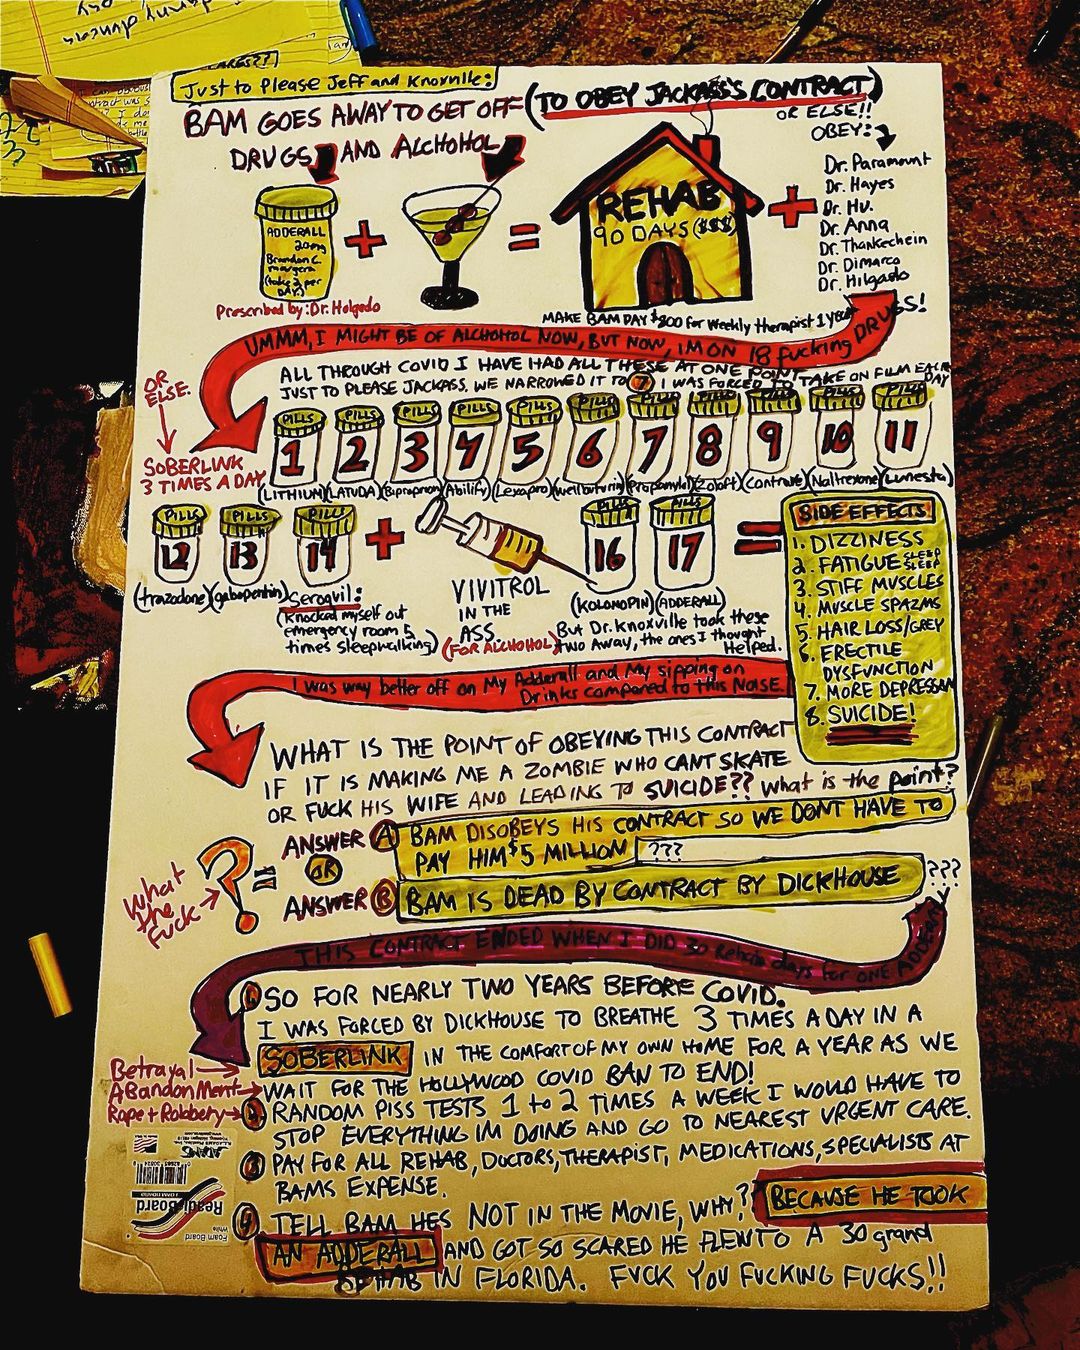 CARGS??
Just to Please Jeff and Knoxville:
BAM GOES AWAY TO GET OFF (TO OBEY JACKASS'S CONTRACT)
OR ELSE!!
DRUGS AND ALCHOHOL
OBEY:
Dr. Paramount
Dr. Hayes
Dr. Hu.
Dr. Anna
Dr. Thankechein
Dr. Dimarco
Dr. Hilgado
ADDERALL
20mg
Brandon C.
margera
(take 3 per
DAY.)
+
=
REHAB
90 DAYS ($$$)
+
Prescribed by: Dr. Holgado
MAKE BAM PAY $800 for weekly therapist 1 year
UMMM, I MIGHT BE OF ALCHOHOL NOW, BUT NOW, IM ON 18 fucking DRUGS!
ALL THROUGH COVID I HAVE HAD ALL THESE AT ONE POINT
JUST TO PLEASE JACKASS, WE NARROWED IT TO 7 I WAS FORCED TO TAKE ON FILM EACH
DAY
OR
ELSE.
SOBERLINK
3 TIMES A DAY
PILLS PILLS PILLS PILLS PILLS PILLS PILLS PILLS PILLS PILLS PILLS
1 2 3 4 5 6 7 8 9 10 11
(LITHIUM) (LATUDA) (Bipropron) (Abilify) (Lexapro) (wellbuturin) (Propanylol) (Zoloft) (Contrave) (Naltrexone) (Lunesta)
PILLS PILLS PILLS PILLS PILLS
12 13 14 + 16 17 =
(trazodone) (gabopentin) Seroqvil:
(knocked myself out
emergency room 5
times sleepwalking)
VIVITROL
IN THE
ASS.
(FOR ALCHOHOL)
(KOLONOPIN) (ADDERALL)
But Dr. Knoxville took these
two Away, the ones I thought
Helped.
SIDE EFFECTS
1. DIZZINESS
2. FATIGUE SLEEP SLEEP
3. STIFF MUSCLES
4. MUSCLE SPAZMS
5. HAIR LOSS/GREY
6. ERECTILE
DYSFUNCTION
7. MORE DEPRESSAN
8. SUICIDE!
I was way better off on My Adderall and My sipping on
Drinks compared to this NOISE.
WHAT IS THE POINT OF OBEYING THIS CONTRACT
IF IT IS MAKING ME A ZOMBIE WHO CANT SKATE
OR FUCK HIS WIFE AND LEADING TO SUICIDE?? What is the point?
ANSWER A BAM DISOBEYS HIS CONTRACT SO WE DONT HAVE TO
PAY HIM $5 MILLION ???
OR
ANSWER B BAM IS DEAD BY CONTRACT BY DICKHOUSE ???
What
the
Fuck
? =
THIS CONTRACT ENDED WHEN I DID 30 Rehab days for ONE ADDERALL
1 SO FOR NEARLY TWO YEARS BEFORE COVID.
I WAS FORCED BY DICKHOUSE TO BREATHE 3 TIMES A DAY IN A
SOBERLINK IN THE COMFORT OF MY OWN HOME FOR A YEAR AS WE
WAIT FOR THE HOLLYWOOD COVID BAN TO END!
Betrayal
ABandonMent
Rape + Robbery
2 RANDOM PISS TESTS 1 to 2 TIMES A WEEK I WOULD HAVE TO
STOP EVERYTHING IM DOING AND GO TO NEAREST URGENT CARE.
3 PAY FOR ALL REHAB, DOCTORS, THERAPIST, MEDICATIONS, SPECIALISTS AT
BAMS EXPENSE.
4 TELL BAM HES NOT IN THE MOVIE, WHY? BECAUSE HE TOOK
AN ADDERALL AND GOT SO SCARED HE FLEW TO A 30 grand
REHAB IN FLORIDA. FUCK YOU FUCKING FUCKS!!
ADAMS
ReadiBoard
Foam Board
White